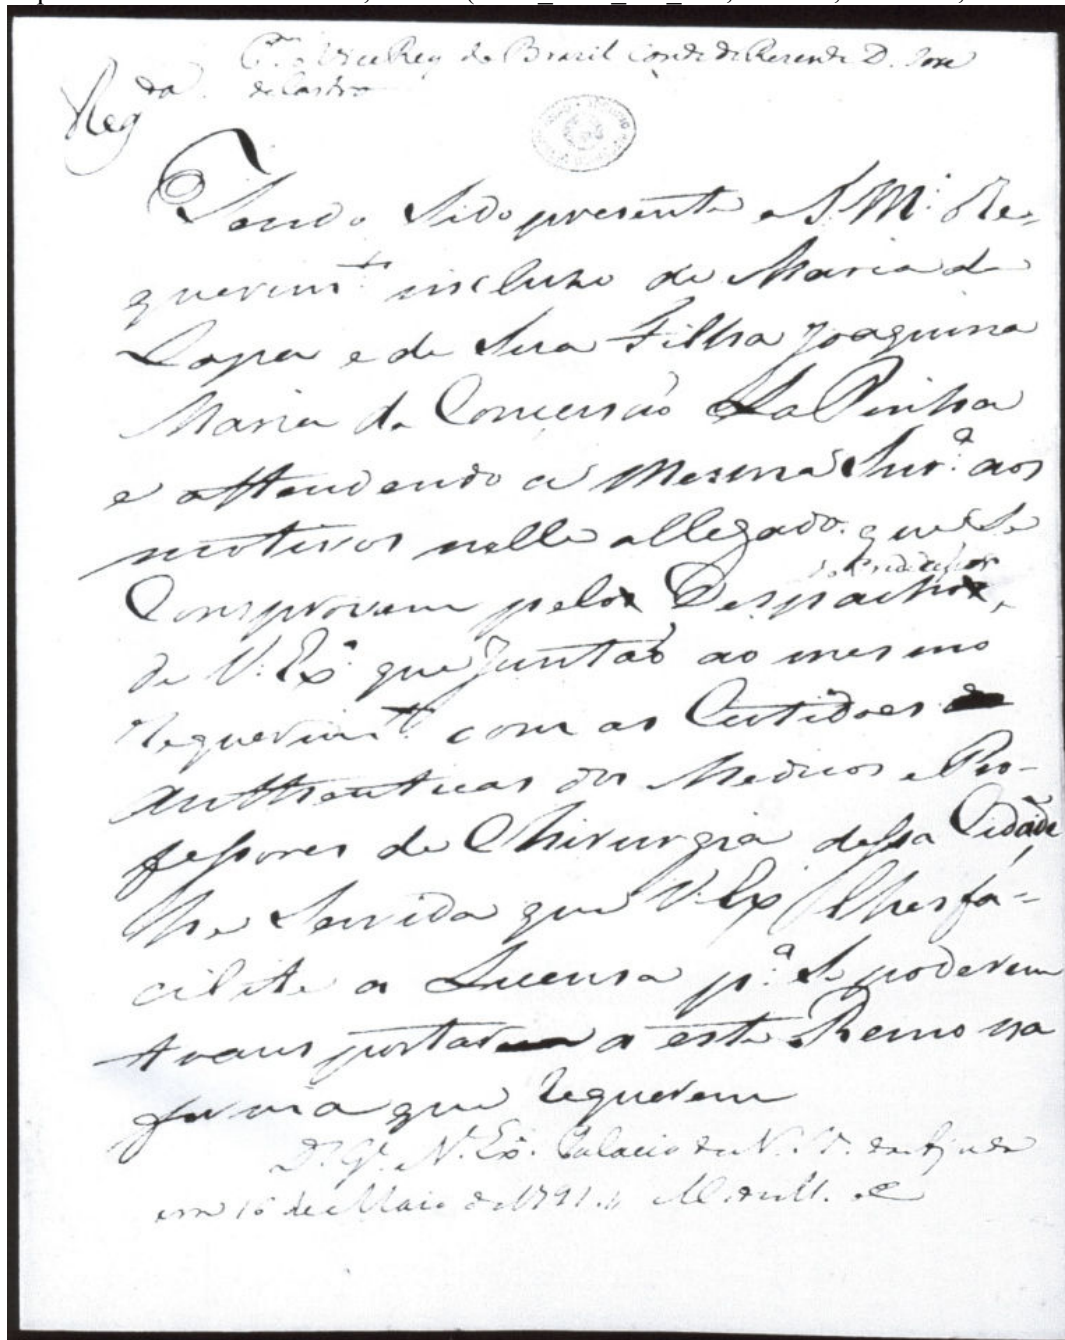 P.ª o Vice Rey do Brazil Conde de Rezende D. Jose
de Castro
Reg.da
Tendo Sido presente a S. M. o Re-
querim.to incluzo de Maria da
Lapa e de Sua Filha Joaquina
Maria da Conceisaõ La Pinha
e attendendo a Mesma Snr.ª aos
motivos nelle allegado que Se
Comprovem pelo Despacho
de V. Ex.ª que juntaõ ao mesmo
requerim.to com as Certidoes
authenticas dos Medicos e Pro-
fessores de Chirurgia dessa Cidade
He Servida que V. Ex.ª lhes fa-
cilite a Licensa p.ª Se poderem
transportar a este Reino na
forma que requerem
D.s G.e V. Ex.ª Palacio de N. S. da Ajuda
em 16 de Maio de 1791. M. de M. e